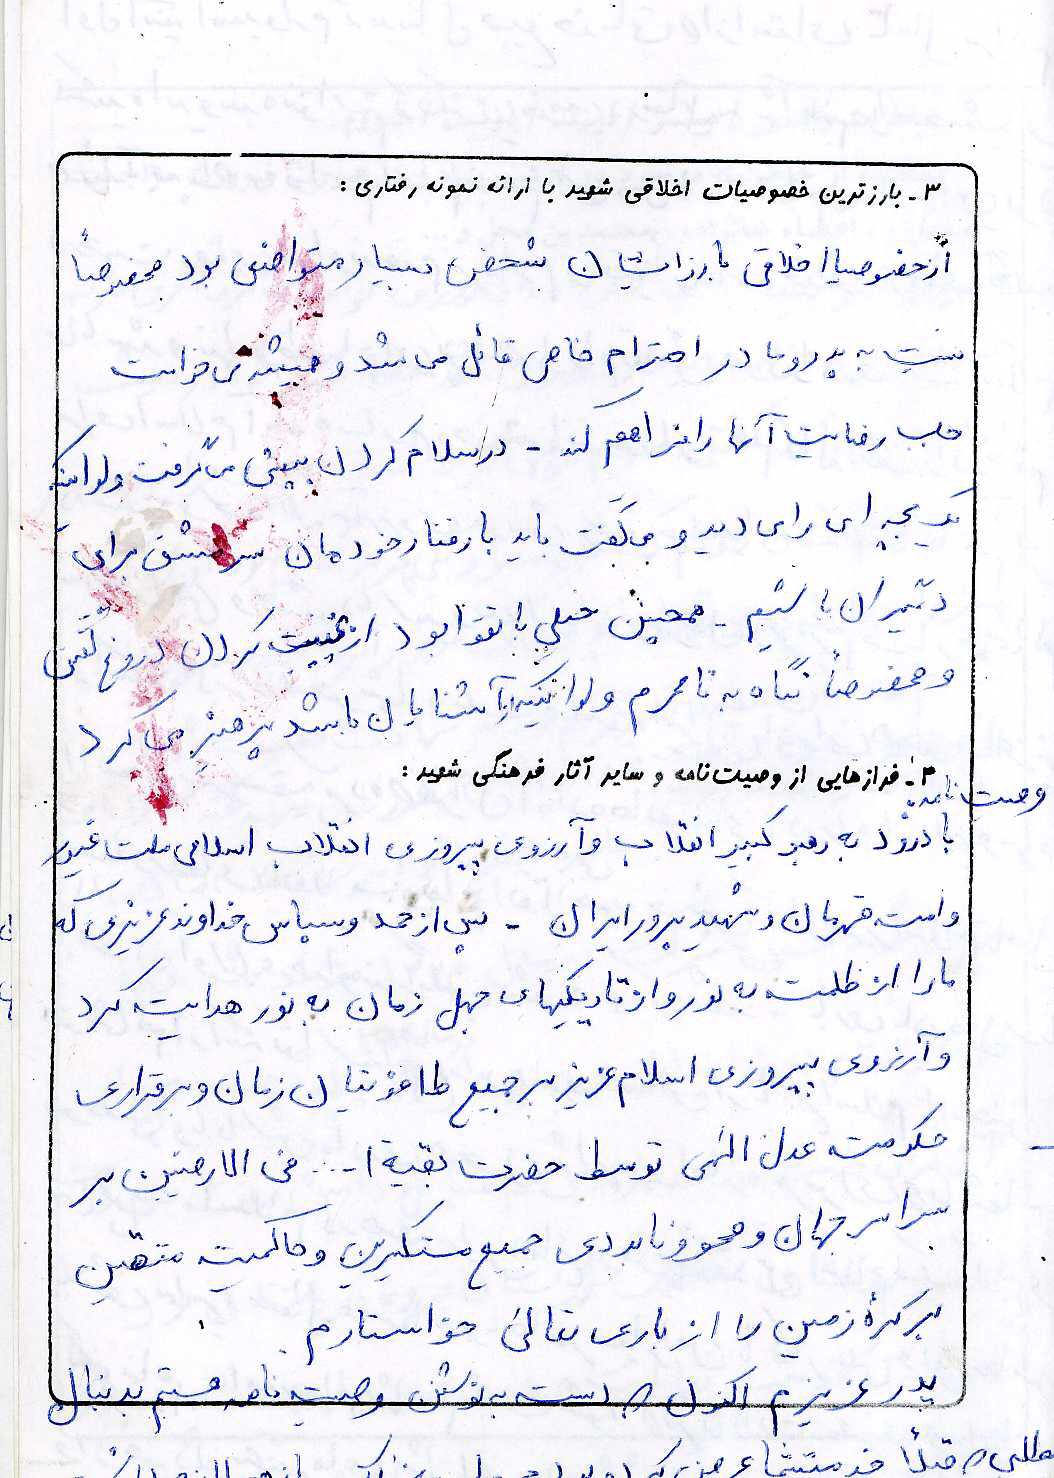 ۳- بارزترین خصوصیات اخلاقی شهید با ارائه نمونه رفتاری :
از خصوصیا اخلاقی بارز ایشان شخص بسیار متواضعی بود مخصوصاً
نسبت به پدر و مادر احترام خاصی قائل می شد و همیشه می خواست
جلب رضایت آنها را فراهم کند - در سلام کردن پیشی می گرفت ولو اینکه
یک بچه ای را می دید و می گفت باید با رفتار خودمان سرمشق برای
دیگران باشیم - همچنین خیلی با تقوا بود از غیبت کردن دروغ گفتن
و مخصوصاً نگاه به نامحرم ولو اینکه از آشنایان باشد پرهیز می کرد
۴- فرازهایی از وصیت نامه و سایر آثار فرهنگی شهید :
وصیت نامه:
با درود به رهبر کبیر انقلاب و آرزوی پیروزی انقلاب اسلامی ملت غیور
و امت قهرمان و شهید پرور ایران - پس از حمد و سپاس خداوند عزیزی که
ما را از ظلمت به نور و از تاریکیهای جهل زمان به نور هدایت کرد
و آرزوی پیروزی اسلام عزیز بر جمیع طاغوتیان زمان و برقراری
حکومت عدل الهی توسط حضرت بقیة ا... فی الارضین بر
سراسر جهان و محو و نابودی جمیع مستکبرین و حاکمیت متقین
بر کرۀ زمین را از باری تعالی خواستارم
پدر عزیزم اکنون که دست به نوشتن وصیت نامه هستم بدنبال
قبلاً خدمتتان عرض